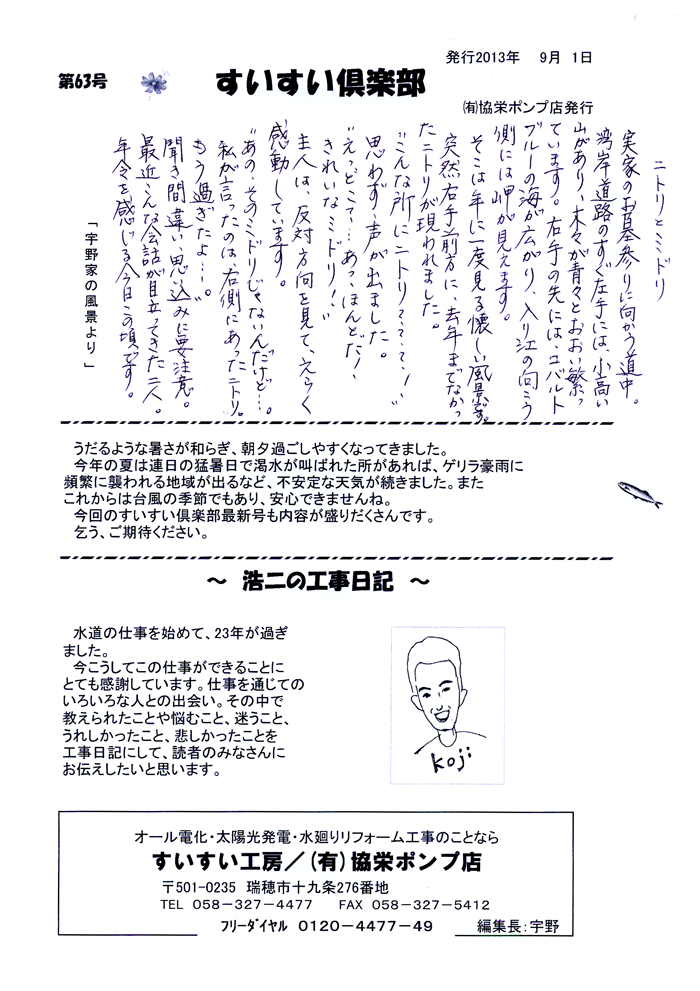 発行2013年　9月 1日
第63号
すいすい倶楽部
㈲協栄ポンプ店発行
ニトリとミドリ
実家のお墓参りに向かう道中。
湾岸道路のすぐ左手には、小高い
山があり、木々が青々とおおい繁っ
ています。右手の先には、コバルト
ブルーの海が広がり、入り江の向こう
側には岬が見えます。
そこは年に一度見る懐しい風景です。
突然右手前方に、去年までなかっ
たニトリが現われました。
"こんな所にニトリ？？？！"
思わず、声が出ました。
"えっどこって…あっ、ほんとだ！
きれいなミドリ！"
主人は、反対方向を見て、えらく
感動しています。
"あの、そのミドリじゃないんだけど…。
私が言ったのは、右側にあったニトリ。
もう過ぎたよ…。
聞き間違い、思い込みに要注意。
最近こんな会話が目立ってきた二人。
年令を感じる今日この頃です。
「宇野家の風景より」
うだるような暑さが和らぎ、朝夕過ごしやすくなってきました。
今年の夏は連日の猛暑日で渇水が叫ばれた所があれば、ゲリラ豪雨に
頻繁に襲われる地域が出るなど、不安定な天気が続きました。また
これからは台風の季節でもあり、安心できませんね。
今回のすいすい倶楽部最新号も内容が盛りだくさんです。
乞う、ご期待ください。
～ 浩二の工事日記 ～
水道の仕事を始めて、23年が過ぎ
ました。
今こうしてこの仕事ができることに
とても感謝しています。仕事を通じての
いろいろな人との出会い。その中で
教えられたことや悩むこと、迷うこと、
うれしかったこと、悲しかったことを
工事日記にして、読者のみなさんに
お伝えしたいと思います。
koji
オール電化・太陽光発電・水廻りリフォーム工事のことなら
すいすい工房／(有)協栄ポンプ店
〒501-0235 瑞穂市十九条276番地
TEL 058-327-4477　FAX 058-327-5412
フリーダイヤル 0120-4477-49
編集長：宇野